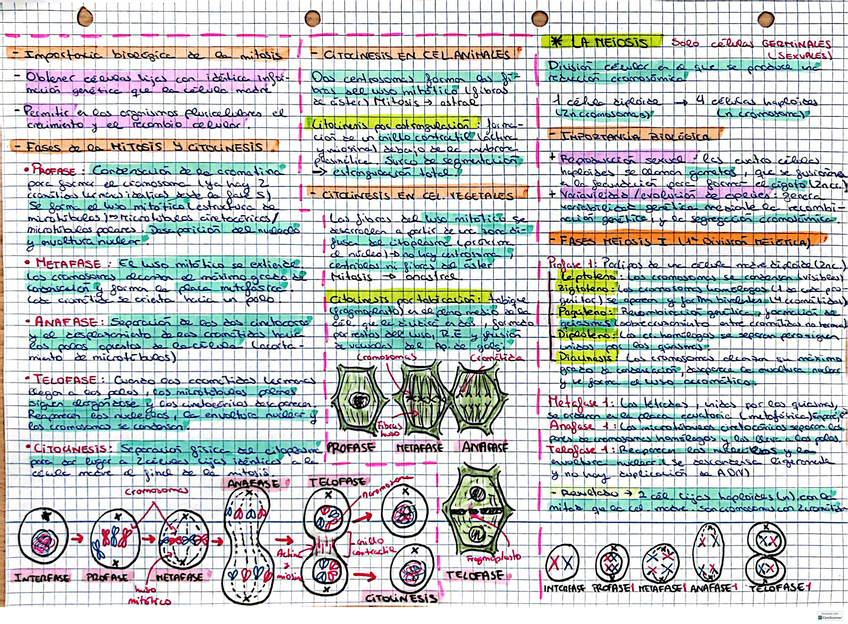 - Importancia biológica de la mitosis
- Obtener células hijas con idéntica información genética que la célula madre
- Permitir en los organismos pluricelulares el crecimiento y el recambio celular.
- FASES de la MITOSIS Y CITOCINESIS
• PROFASE: Condensación de la cromatina
para formar el cromosoma (ya hay 2
Se forma el uso mitótico (estructura de
microtúbulos) → microtúbulos cinetocóricos/
microtúbulos polares. Desaparición del nucleolo
y envoltura nuclear.
• METAFASE: El uso mitótico se extiende
Los cromosomas alcanzan el máximo grado de
condensación y forman la placa metafásica
cada cromátida se orienta hacia un polo.
• ANAFASE: Separación de los dos
y el desplazamiento de cromátidas hacia
los polos opuestos de la célula (acorta-
miento de microtúbulos)
• TELOFASE: Cuando las cromátidas hermanas
llegan a los polos, los microtúbulos polares
siguen alargándose. Los cinetocóricos desaparecen.
Reaparecen los nucleolos, la envoltura nuclear y
los cromosomas se condensan.
• CITOCINESIS: Separación física del citoplasma
para dar lugar a 2 células hijas idénticas a la
célula madre al final de la mitosis
cromosomas
INTERFASE
PROFASE
METAFASE
huso
mitótico
ANAFASE
TELOFASE
Actina
y miosina
Anillo
contráctil
CITOCINESIS
- CITOCINESIS EN CEL. ANIMALES
Dos centrosomas forman las fi-
bras del uso mitótico (fibras
de áster) Mitosis → astral
Citocinesis por estrangulación: forma-
ción de un anillo contráctil (actina
y miosina) debajo de la membrana
plasmática. Surco de segmentación
→ estrangulación total
- CITOCINESIS EN CEL. VEGETALES
Las fibras del uso mitótico se
desarrollan a partir de una zona
del citoplasma (próxima
al núcleo) → no hay centriolos,
ni fibras del áster
Mitosis → anastral
Citocinesis por tabicación: tabique
(fragmoplasto) en el plano medio de la
cél. que
de vesículas del Ap. de Golgi.
Cromosomas
Cromátida
Fibras
huso
PROFASE
METAFASE
ANAFASE
Fragmoplasto
TELOFASE
* LA MEIOSIS
Solo células GERMINALES
(SEXUALES)
División celular en la que se produce una
reducción cromosómica
1 célula diploide → 4 células haploides
(2n cromosomas) (n cromosomas)
- IMPORTANCIA BIOLÓGICA
+ Reproducción sexual: las cuatro células
haploides se llaman gametos, que se fusionan
en la fecundación y forman el cigoto (2n cr.)
+ Variabilidad/evolución de especies: genera
variabilidad genética mediante la recombi-
nación genética y la segregación cromosómica.
- FASES MEIOSIS I (1ª División MEIÓTICA)
Profase 1: Partimos de una célula madre diploide (2n cr.)
Leptoteno: Los cromosomas se condensan (visibles)
Zigoteno: Los cromosomas homólogos (1 de cada pro-
genitor) se aparean y forman bivalentes (4 cromátidas)
Paquiteno: Recombinación genética, formación de
Diploteno: Los c. homólogos se separan pero siguen
unidos
Diacinesis: Los cromosomas alcanzan su máximo
grado de condensación, desaparece la envoltura nuclear
y se forma el uso acromático.
Metafase 1: Las tétradas, unidas por los quiasmas,
se ordenan en la placa ecuatorial (metafásica)
Anafase 1: Los microtúbulos cinetocóricos separan los
pares de cromosomas homólogos y los lleva a los polos.
Telofase 1: Reaparecen los nucleolos y la
envoltura nuclear y se descondensa ligeramente
y no hay duplicación de ADN)
- Resultado → 2 cél. hijas haploides (n) con la
INTERFASE PROFASE 1 METAFASE 1 ANAFASE 1 TELOFASE 1
CamScanner